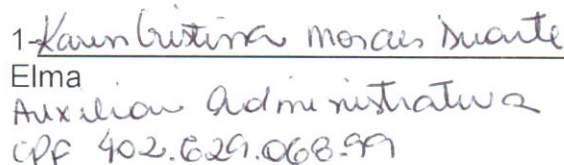 1-Karen Cristina Moraes Duarte
Elma
Auxiliar Administrativa
CPF 402.629.068-99